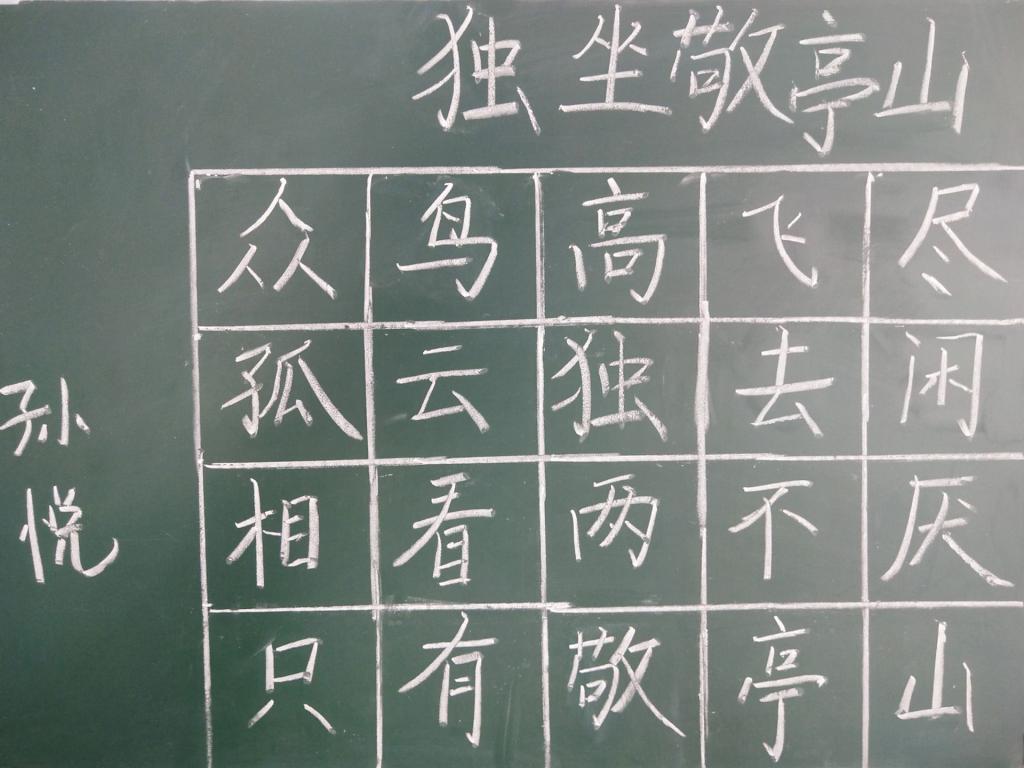 独坐敬亭山
众鸟高飞尽
孤云独去闲
相看两不厌
只有敬亭山
孙悦